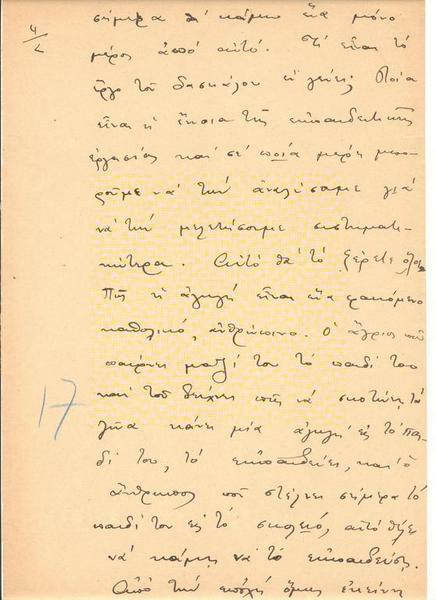 4/2
σήμερα θὰ κάμω ἕνα μόνο
μέρος ἀπὸ αὐτό. Τί εἶναι τὸ
ἔργο τοῦ δασκάλου; Ποία
εἶναι ἡ ἔννοια τῆς ἐκπαιδευτικῆς
ἐργασίας καὶ σὲ ποιά μέρη μπο-
ροῦμε νὰ τὴν ἀναλύσωμε γιὰ
νὰ τὴν μελετήσουμε συστηματι-
κώτερα. Αὐτὸ θὰ τὸ ξέρετε ὅλοι
Πῶς ἡ ἀγωγὴ εἶναι ἕνα φαινόμενο
καθολικό, ἀνθρώπινο. Ὁ ἄγριος ποὺ
παίρνει μαζί του τὸ παιδί του
καὶ τοῦ δείχνει πῶς νὰ σκοτώνῃ τὰ
17
ζῶα κάνει μία ἀγωγὴ εἰς τὸ παι-
δί του, τὸ ἐκπαιδεύει, καὶ ὁ
ἄνθρωπος ποὺ στέλνει σήμερα τὸ
παιδί του εἰς τὸ σχολεῖο, αὐτὸ θέλει
νὰ κάμῃ, νὰ τὸ ἐκπαιδεύσῃ.
Ἀπὸ τὴν ἐποχὴ ὅμως ἐκείνη